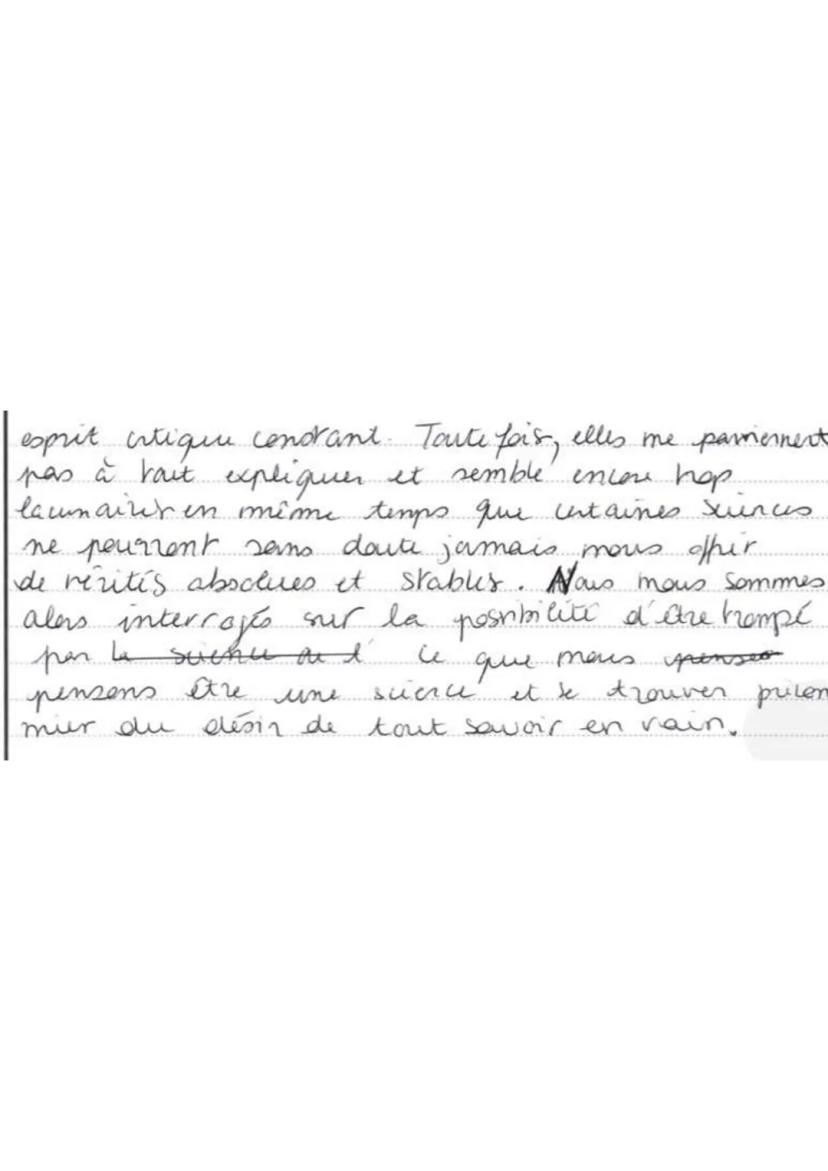 esprit critique constant. Toutefois, elles ne parviennent
pas à tout expliquer et semble encore trop
lacunaires en même temps que certaines sciences
ne pourront sans doute jamais nous offrir
de vérités absolues et stables. Nous nous sommes
alors interrogés sur la possibilité d'être trompé
par la science de l' ce que nous penso
pensons être une science et se trouver prison
nier du désir de tout savoir en vain.